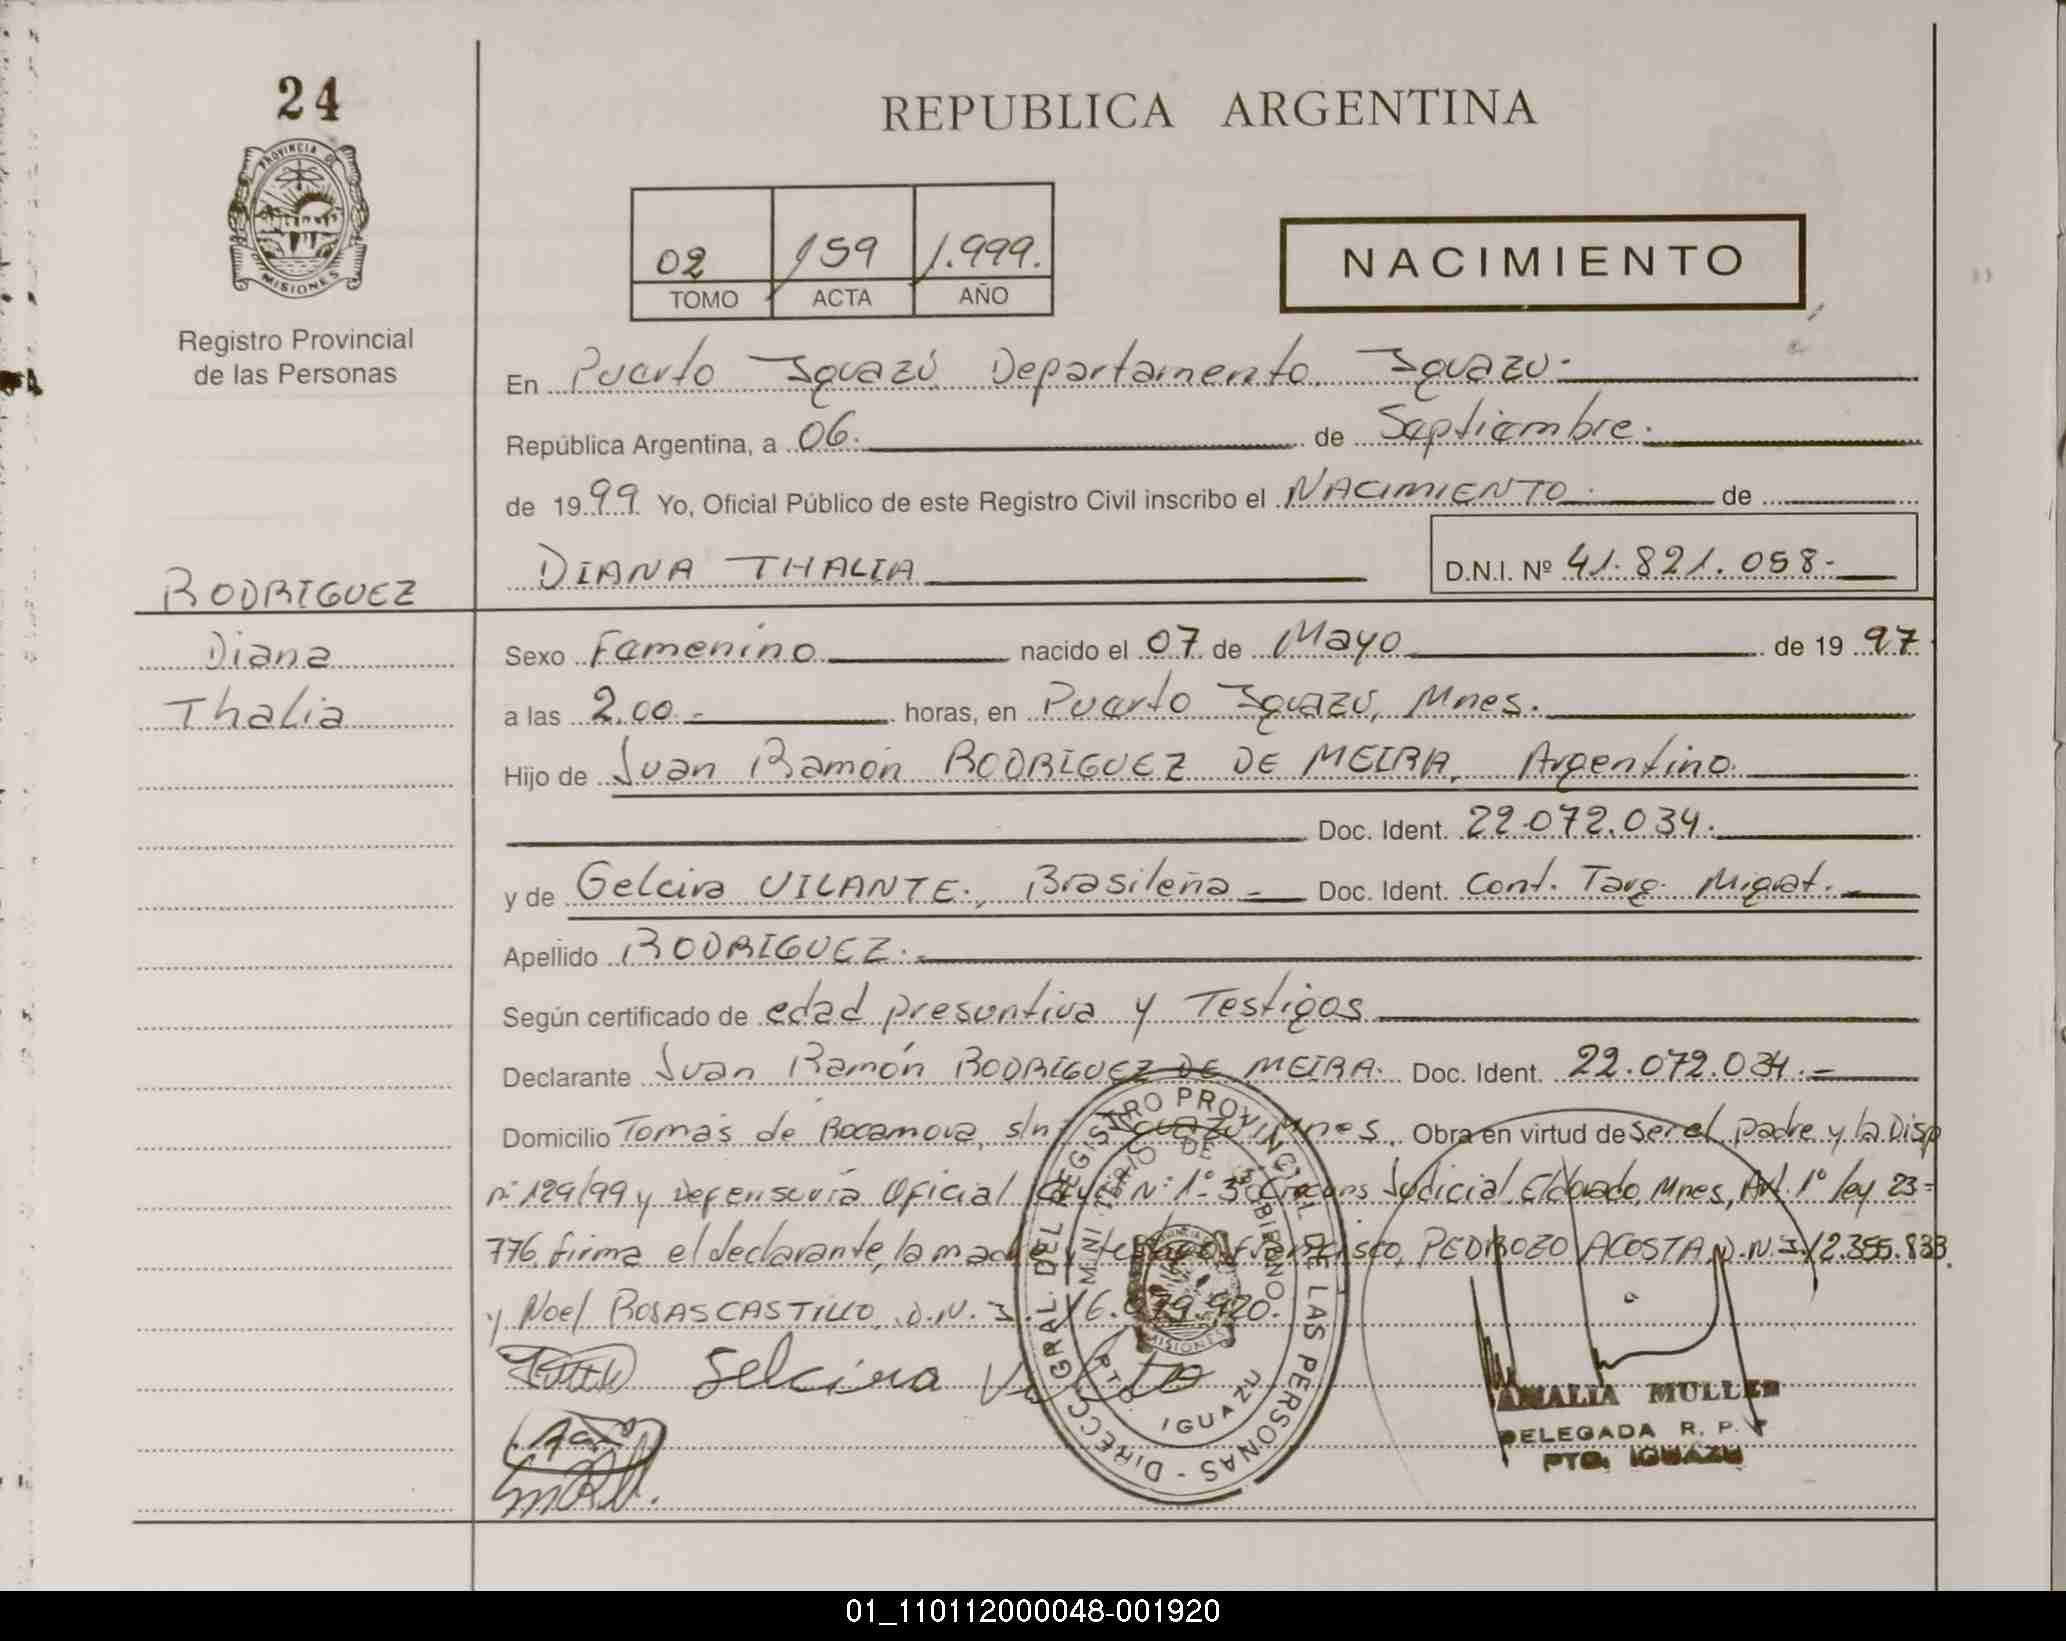 24
REPUBLICA ARGENTINA
PROVINCIA DE MISIONES
Registro Provincial
de las Personas
02 159 1.999.
TOMO ACTA AÑO
NACIMIENTO
En Puerto Iguazú Departamento Iguazu.
República Argentina, a 06. de Septiembre.
de 1999. Yo, Oficial Público de este Registro Civil inscribo el NACIMIENTO. de
DIANA THALIA D.N.I. Nº 41.821.058.-
RODRIGUEZ
Diana
Thalia
Sexo Femenino nacido el 07 de Mayo de 1997.
a las 2.00.- horas, en Puerto Iguazú, Mnes.
Hijo de Juan Ramón RODRIGUEZ DE MEIRA, Argentino.
Doc. Ident. 22.072.034.
y de Gelcira VILANTE., Brasileña.- Doc. Ident. Cont. Targ. Migrat.-
Apellido RODRIGUEZ.-
Según certificado de edad presuntiva y Testigos
Declarante Juan Ramón RODRIGUEZ DE MEIRA. Doc. Ident. 22.072.034.-
Domicilio Tomás de Rocamora, s/n Iguazú, Mnes. Obra en virtud de ser el padre y la Disp
nº 129/99 y Defensoría Oficial Nº 1º 3º Circuns Judicial Eldorado, Mnes, Art. 1º ley 23-
776, firma el declarante, la madre y testigo Francisco, PEDROZO ACOSTA, D.N.I. 12.355.833.
y Noel ROJAS CASTILLO, D.N.I. 16.979.920.
Gelcira
DIRECC. GRAL. DEL REGISTRO PROVINCIAL DE LAS PERSONAS
MINISTERIO DE GOBIERNO
PTO. IGUAZU
MISIONES
AMALIA MULLER
DELEGADA R. P. P
PTO. IGUAZU
01_110112000048-001920